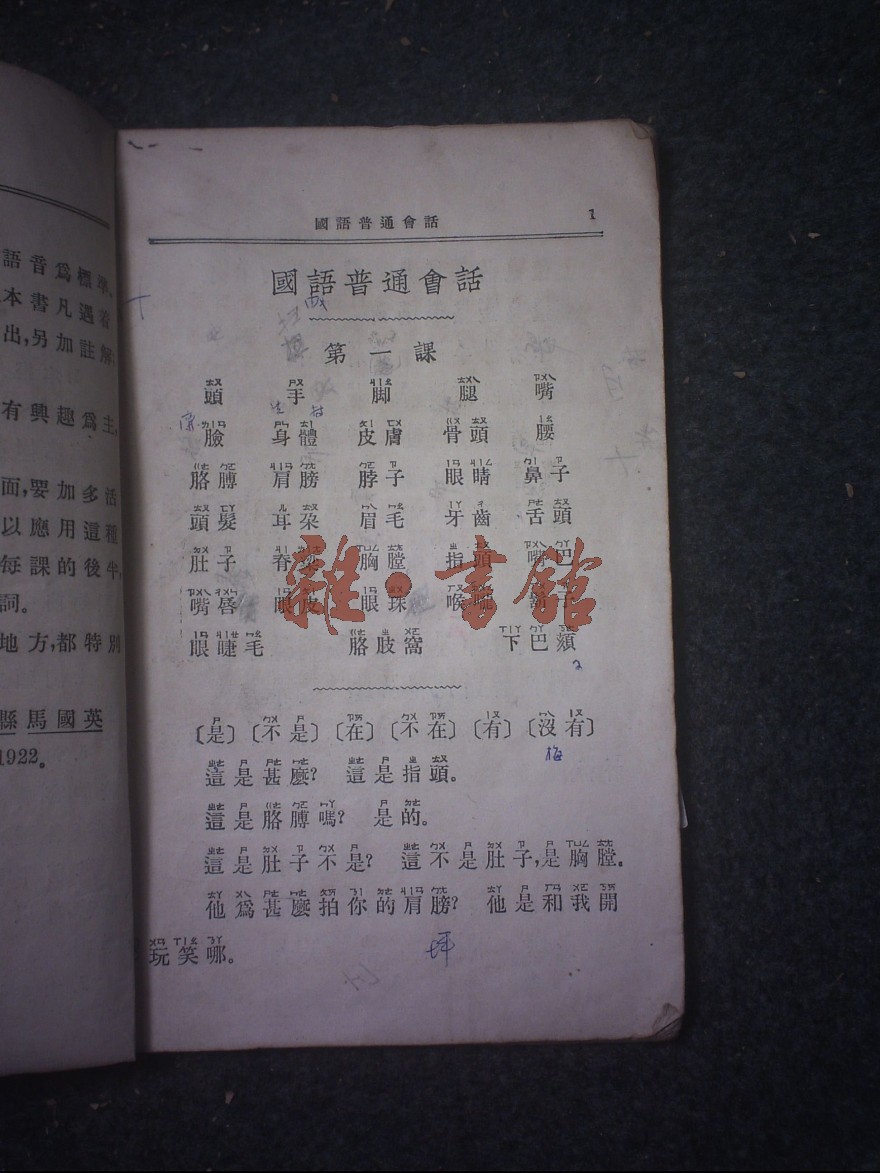 語音爲標準。
本書凡遇着
出,另加註解;
有興趣爲主,
面,要加多活
以應用這種
每課的後半,
詞。
地方,都特別
縣馬國英
1922。
國語普通會話 1
國語普通會話
第一課
頭 手 脚 腿 嘴
臉 身體 皮膚 骨頭 腰
胳膊 肩膀 脖子 眼睛 鼻子
頭髮 耳朶 眉毛 牙齒 舌頭
肚子 脊梁 胸膛 指頭 嘴巴
嘴唇 眼皮 眼珠 喉嚨
眼睫毛 胳肢窩 下巴頦
雜·書館
〔是〕〔不是〕〔在〕〔不在〕〔有〕〔沒有〕
梅
這是甚麽? 這是指頭。
這是胳膊嗎? 是的。
這是肚子不是? 這不是肚子,是胸膛。
他爲甚麽拍你的肩膀? 他是和我開
玩笑哪。